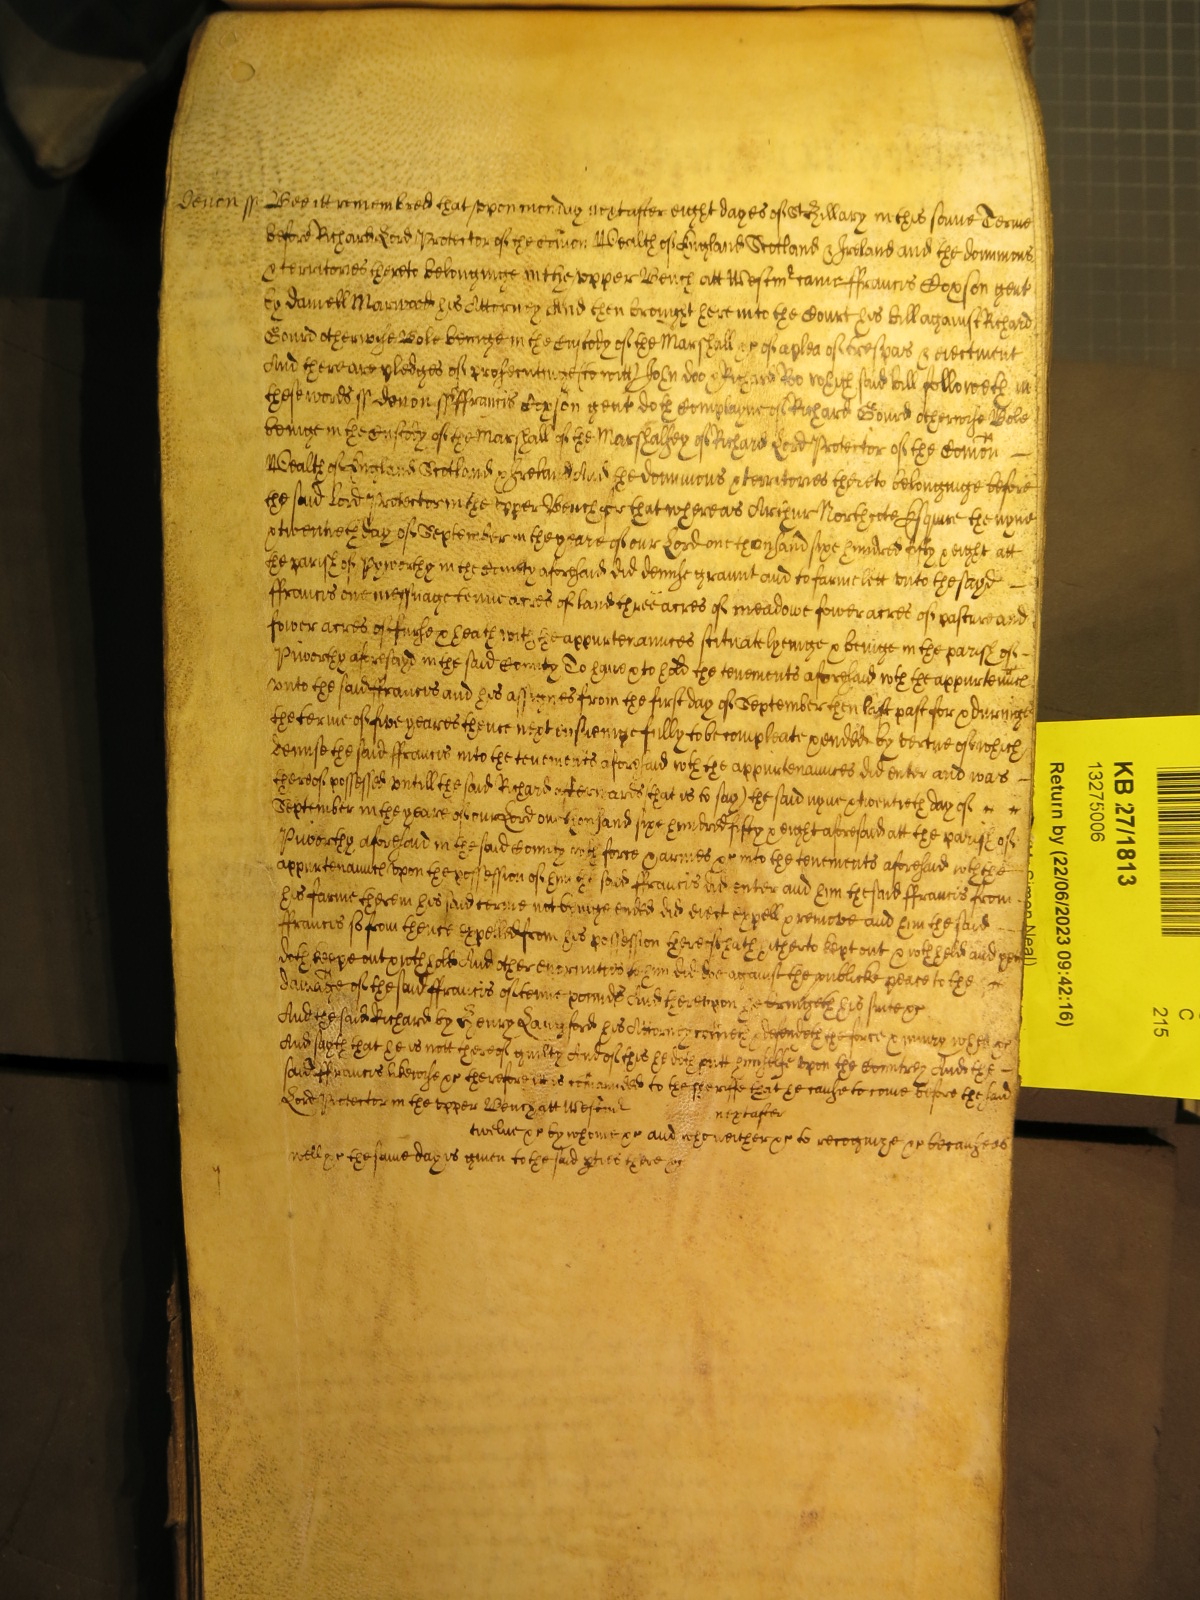 Devon ss Bee itt remembred that upon monday next after eight dayes of St Hillary in this same Terme
before Richard Lord Protector of the Com̄on Wealth of England Scotland & Ireland and the dominions
& territories thereto belonginge in the upper Bench att Westmr came ffrancis Coxson gent
by Daniell Marwood his Attorney And then brought here into the Court his bill against Richard
Gourd otherwise Bole beinge in the Custody of the Marshall &c of a plea of trespas & eiectment
And there are pledges of prosecutinge (to witt) John Doo & Richard Roo which said bill followeth in
these words ss Devon ss ffrancis Coxson gent doth Complayne of Richard Gourd otherwise Bole
beinge in the Custody of the Marshall of the Marshalsey of Richard Lord Protector of the Com̄on
Wealth of England Scotland & Ireland And the dominions & territories thereto belonginge before
the said Lord Protector in the upper Bench for that whereas Arthur Northcote Esquire the nyne
& twentieth day of September in the yeare of our Lord one thousand sixe hundred fifty & eight att
the parish of Pyworthy in the County aforesaid did demise graunt and to farme lett unto the sayd
ffrancis one messuage tenne acres of land three acres of meadowe fower acres of pasture and
fower acres of furse & heath with the appurtenaunces scituate lyeinge & beinge in the parish of
Piworthy aforesayd in the said County To have & to hold the tenements aforesaid with the appurtenn̄ces
unto the said ffrancis and his assignes from the first day of September then last past for & duringe
the terme of five yeares thence next ensueinge fully to be compleate & ended by vertue of which
demise the said ffrancis into the tenements aforesaid with the appurtenaunces did enter and was
thereof possessed untill the said Richard afterwards (that is to say) the said nyne & twentieth day of
September in the yeare of our Lord one thousand sixe hundred fifty & eight aforesaid att the parish of
Piworthy aforesaid in the said County with force & armes &c into the tenements aforesaid with the
appurtenaunces upon the possession of him the said ffrancis did enter and him the said ffrancis from
his farme therein his said terme not beinge ended did eiect expell & remove and him the said
ffrancis so from thence expelled from his possession thereof hath hitherto kept out & withheld and yet
doth keepe out & withhold And other enormities to him did doe against the publicke peace to the
damage of the said ffrancis of tenne pounds And thereupon he bringeth his suite &c
And the said Richard by Henry Langford his Attorney cometh & defendeth the force & iniury when &c
And sayth that he is nott thereof guilty And of this he doth putt himselfe upon the Countrey And the
said ffrancis likewise &c therefore it is com̄anded to the sheriffe that he cause to come before the said
Lord Protector in the upper Bench att Westmr next after
twelve &c by whome &c and who neither &c to recognize &c because as
well &c the same day is given to the said pties there &c
KB 27/1813
13275006
Return by (22/06/2023 09:42:16)
C
215